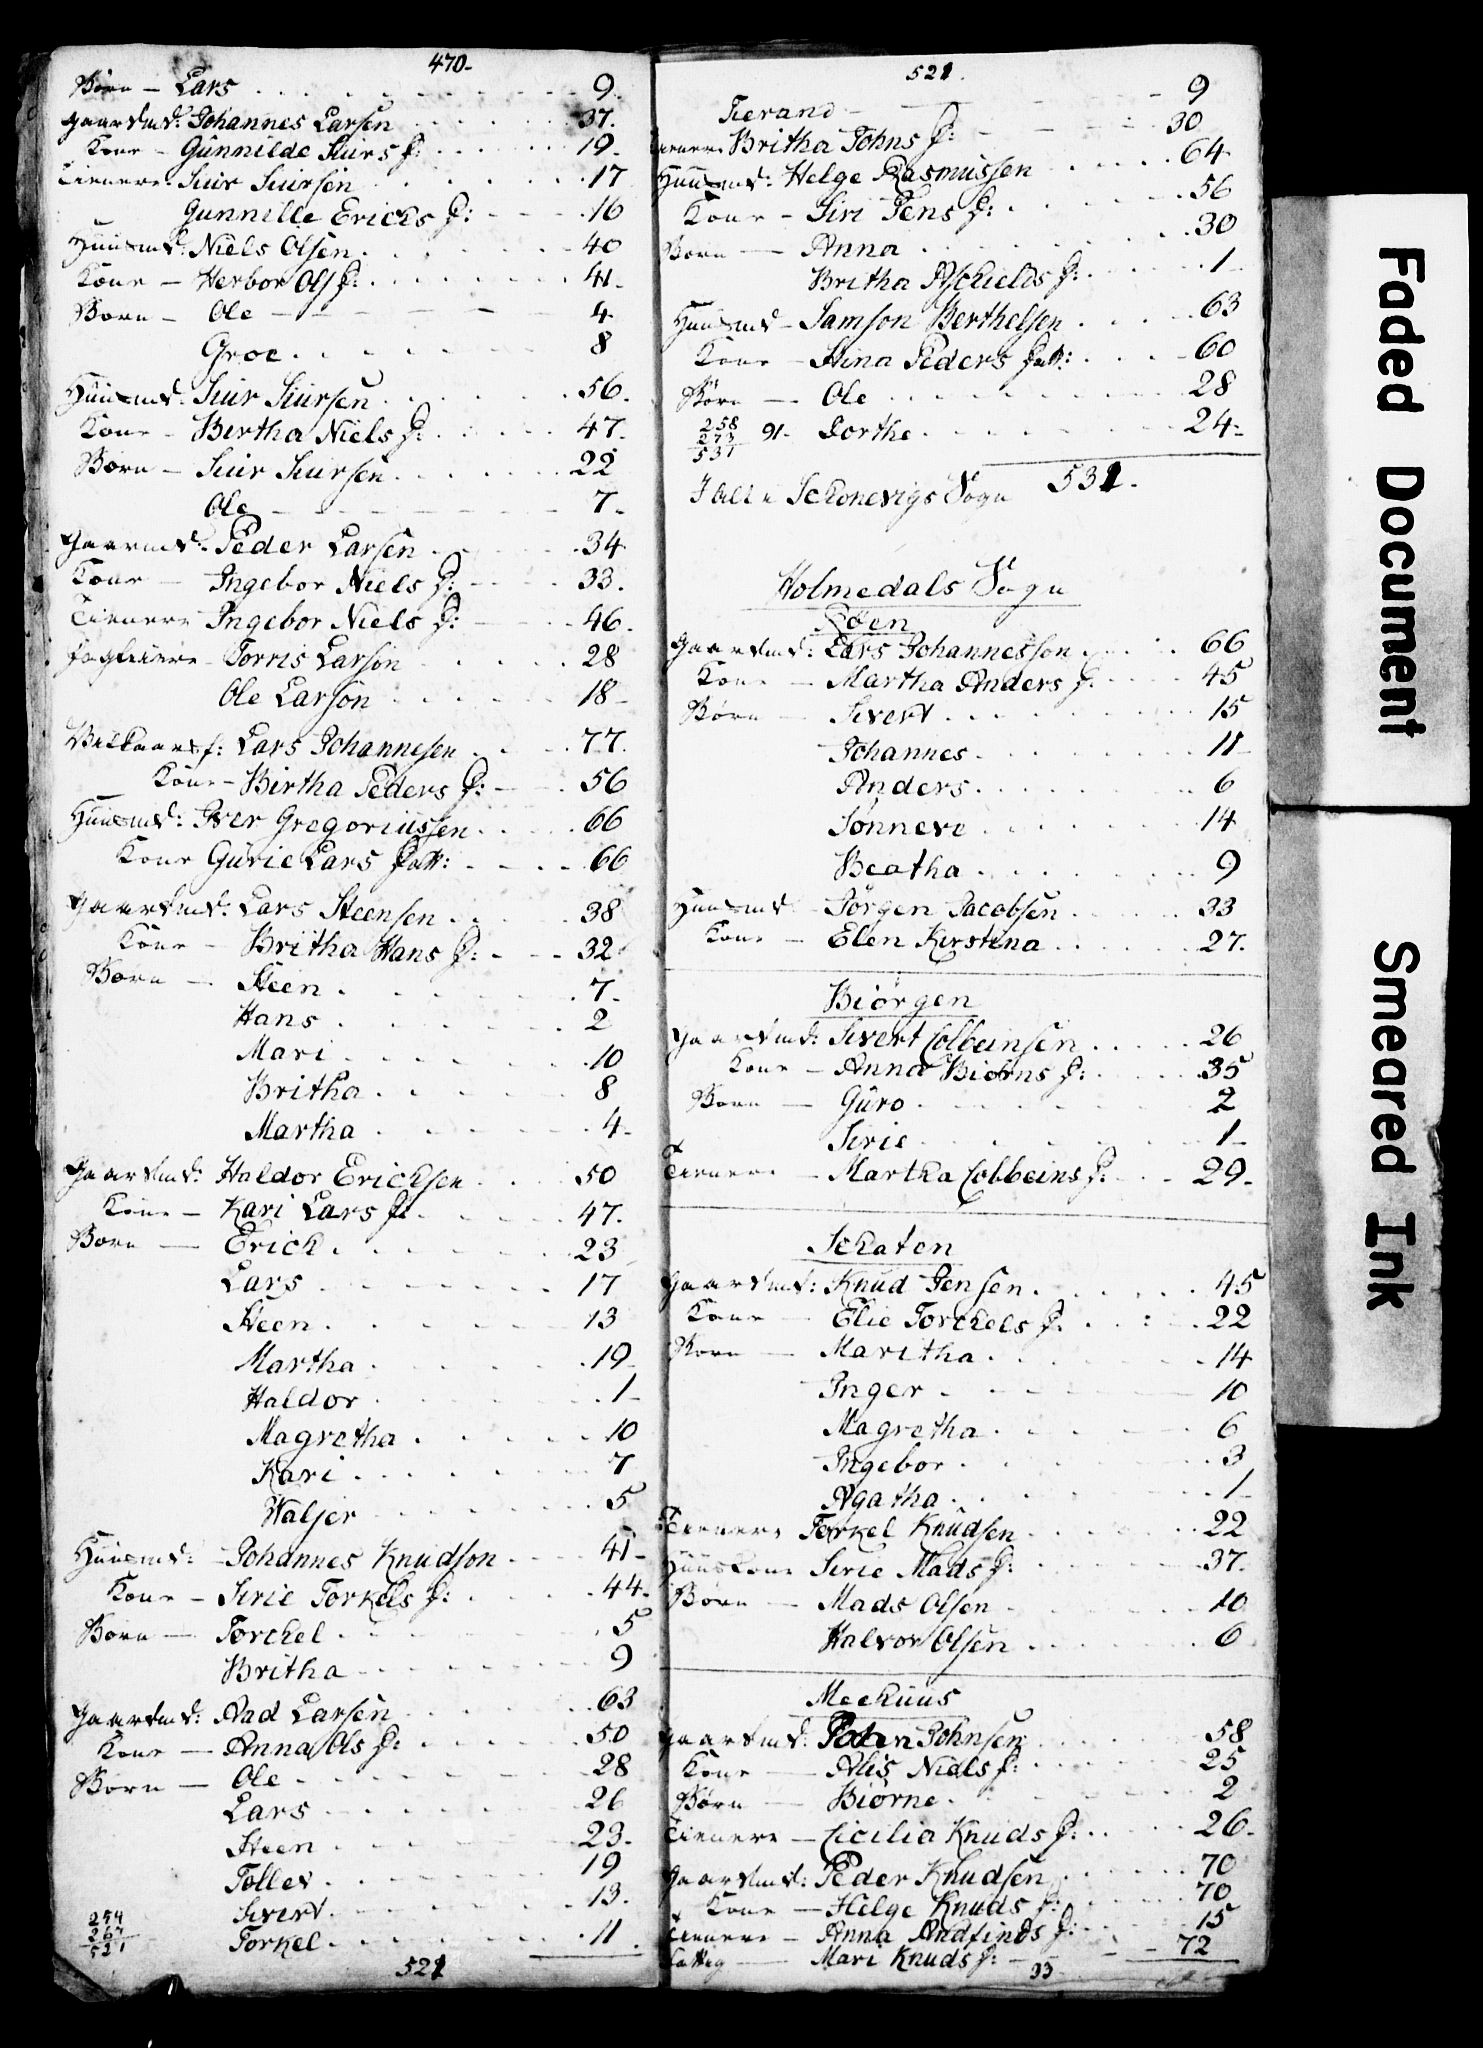 470-
Börn - Lars 9
gaardmd: Johannes Larsen 37.
Kone - Gunnilde Siurs d: 19-
Tienere Siur Siursen 17
Gunnille Ericks d: 16
Huusmd: Niels Olsen 40
Kone - Herbor Ols d: 41-
Born - Ole 4
Groe 8
Huusmd: Siur Siursen 56.
Kone - Bertha Niels d: 47-
Born - Siur Siursen 22
Ole 7-
gaarmd: Peder Larsen 34
Kone - Ingebor Niels d: 33.
Tienere Ingebor Niels d: 46.
Torris Larson 28
Ole Larson 18-
Lars Johannesen 77.
Kone - Birtha Peders d: 56
Huusmd: Iver Gregoriussen 66
Kone Gurie Lars datt: 66
gaardmd: Lars Steensen 38
Kone - Britha Hans d: 32
Born - Steen 7-
Hans 2
Mari 10
Britha 8
Martha 4-
gaardmd: Haldor Ericksen 50
Kone - Kari Lars d: 47.
Born - Erick 23
Lars 17
Steen 13
Martha 19
Haldor 1-
Magretha 10
Kari 7
Waljer 5
Huusmd: Johannes Knudson 41-
Kone - Sirie Torkels d: 44-
Born - Torckel 5
Britha 9
gaardmd: Aad Larsen 63
Kone - Anna Ols d: 50
Born - Ole 28
Lars 26
Steen 23-
Tollev 19
Sivert 13.
254
267
521
Torkel 11
521
521.
Tierand 9
Tienere Britha Johns d: 30
Huusmd: Helge Rasmussen 64
Kone - Siri Jens d: 56
Born - Anna 30
Britha Aschields d: 1-
Huusmd - Samson Berthelsen 63
Kone - Stina Peders datt: 60
Börn - Ole 28
258
273
531
91- Dorthe 24-
I Alt i Schonevigs Sogn 531-
Holmedals Sogn
Röen
gaardmd: Lars Johannesson 66
Kone - Martha Anders d: 45
Börn - Sivert 15
Johannes 11
Anders 6
Sönneve 14
Beatha 9
Huusmd Jörgen Jacobsen 33
Kone - Elen Kirstina 27.
Biörgen
gaardmd: Sivert Colbeinsen 26
Kone - Anna Biörns d: 35
Born - Guro 2
Sirie 1-
Tienere - Martha Colbeins d: 29-
Schaten
gaardmd: Knud Jensen 45
Kone - Elie Torckels d: 22
Born - Maritha 14
Inger 10
Magretha 6
Ingebor 3
Agatha 1
Tienere Torkel Knudsen 22
Huuskone Sirie Mads d: 37.
Börn - Mads Olsen 10
Halvor Olsen 6
Meehuus
gaardmd: Johnsen 58
Kone - Alis Niels d: 25
Börn - Biörne 2
Tienere - Cicilia Knuds d: 26-
gaardmd: Peder Knudsen 70
Kone - Helge Knuds d: 70
Tienere - Anna Andfinds d: 15
Fattig - Mari Knuds d: 72
33
Faded Document
Smeared Ink